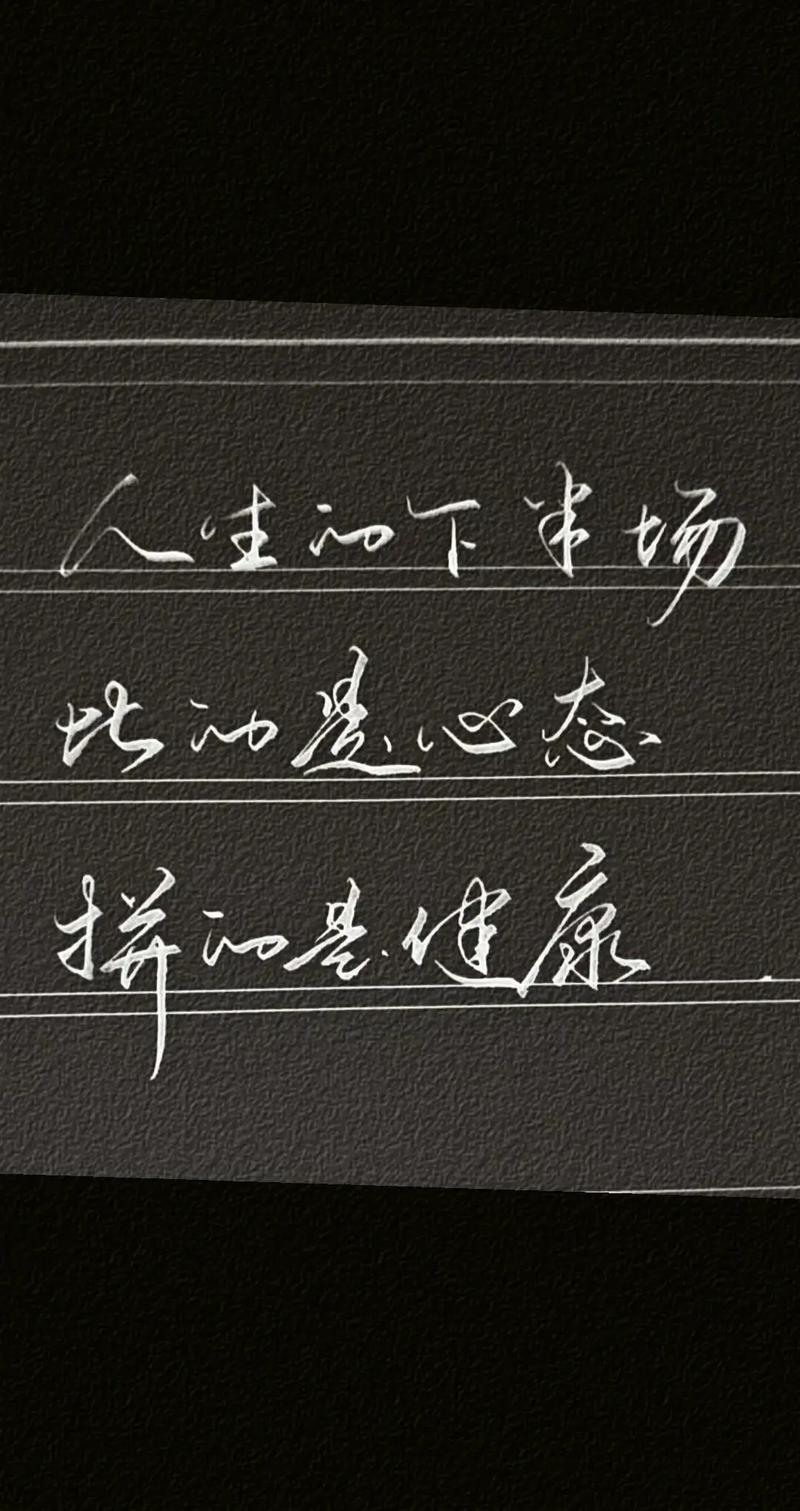 人生的下半场
比的是心态
拼的是健康.